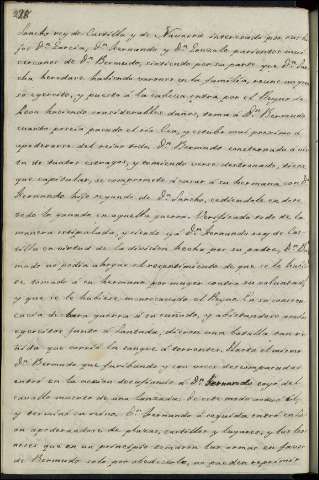 Sancho rey de Castilla y de Navarra interesado por sus hi
jos Dⁿ Garcia, Dⁿ Fernando y Dⁿ Gonzalo parientes muy
cercanos de Dⁿ Bermudo, sintiendo por su parte que Dª San
cha heredase habiendo varones en la familia, reune un grue
so egercito, y puesto á la cabeza entra por el Reyno de
Leon haciendo considerables daños, toma á Dⁿ Bermudo
cuanto poseia pasado el rio Cea, y estubo muy proximo á
apoderarse del reino todo. Dⁿ Bermudo consternado á vis
ta de tantos estragos, y temiendo verse destronado, tiene
que capitular, se compromete á casar á su hermana con Dⁿ
Fernando hijo segundo de Dⁿ Sancho, cediendole en dote
todo lo ganado en aquella guerra. Verificado todo de la
manera estipulada, y siendo ya Dⁿ Fernando rey de Cas
tilla en virtud de la division hecha por su padre, Dⁿ Ber
mudo no podia ahogar el resentimiento de que se le hubie
se tomado á su hermana por muger contra su voluntad,
y que se le hubiese menoscabado el Reyno. En su consecu
encia declara guerra á su cuñado, y avistandose ambos
egercitos junto á Lantada, dióse una batalla tan re
ñida que corria la sangre á torrentes. Hasta el mismo
Dⁿ Bermudo que furibundo y con voces descompasadas
entró en la accion desafiando á Dⁿ Fernando cayó del
caballo muerto de una lanzada. De este modo
y terminó su reino. Dⁿ Fernando á seguida entró en Le
on apoderandose de plazas, castillos y lugares, y los Leo
neses que en un principio tomaron las armas en favor
de Bermudo solo por obedecerle, no pueden reprimir